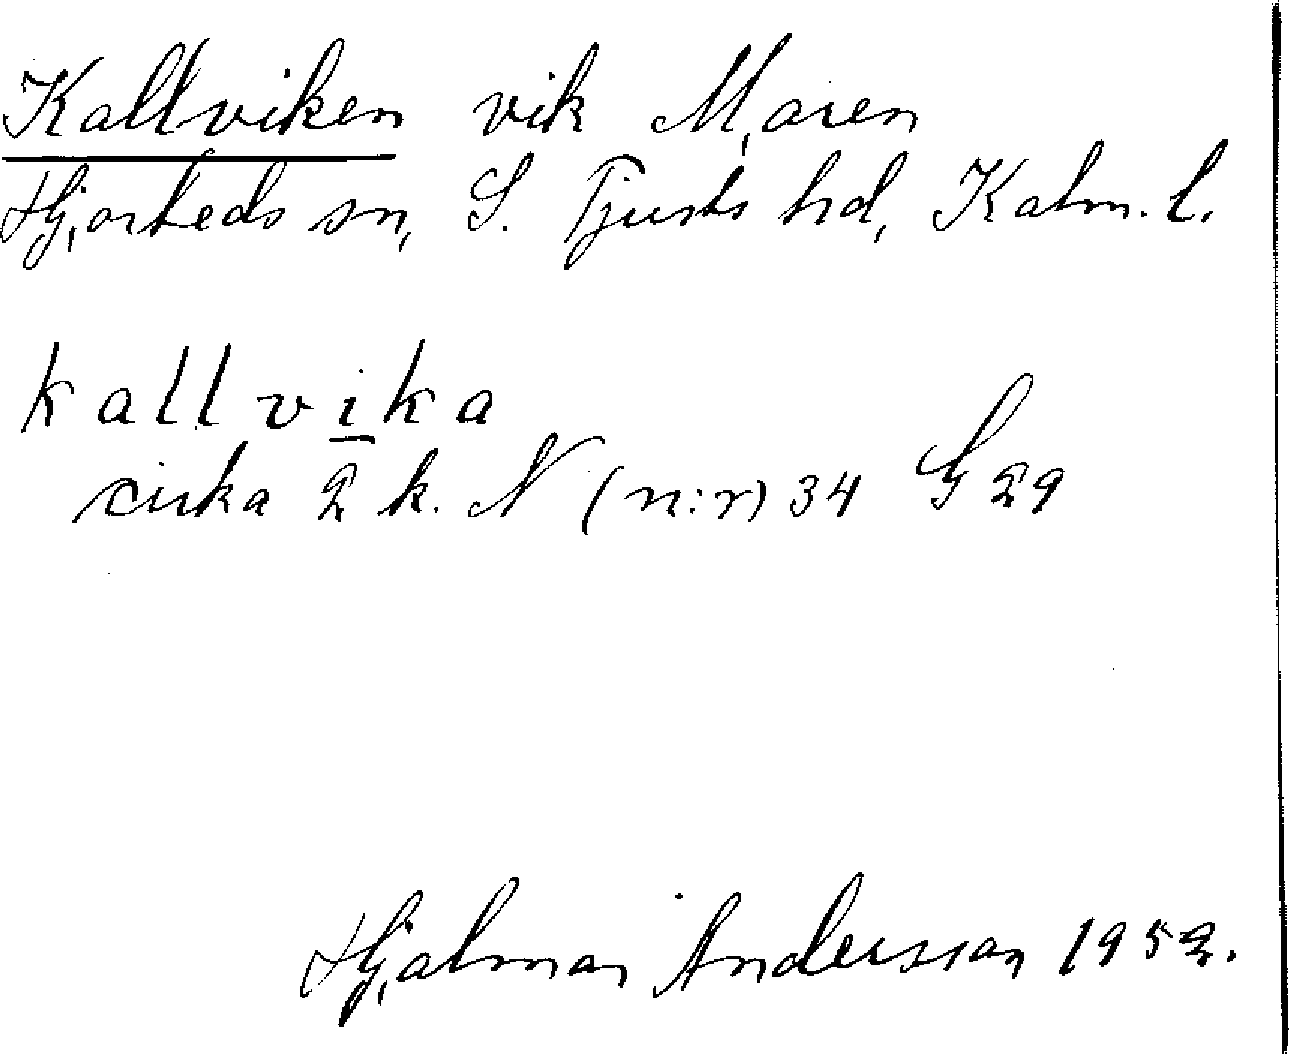 Kallviken vik Maren
Hjorteds sn, S. Tjusts hd, Kalm. l.
kallvika
cirka 2 k. N (n:r) 34 G 29
Hjalmar Andersson 1952.